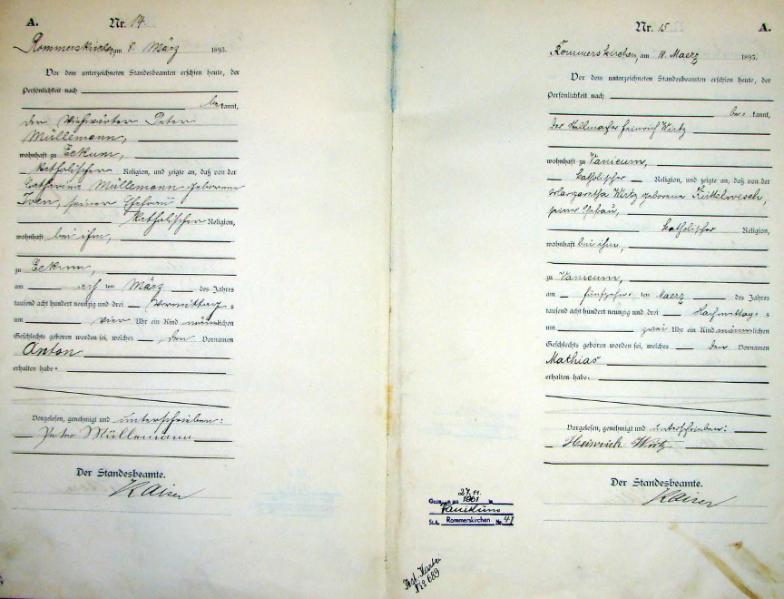 A. Nr. 14
Rommerskirchen, am 8. März 1893.
Vor dem unterzeichneten Standesbeamten erschien heute, der
Persönlichkeit nach
bekannt,
Peter
Müllemann,
wohnhaft zu Eckum,
katholischer Religion, und zeigte an, daß von der
Catharina Müllemann geborene
Iven, seiner Ehefrau
katholischer Religion,
wohnhaft bei ihm,
zu Eckum,
am ten März des Jahres
tausend acht hundert neunzig und drei Vormittags
um vier Uhr ein Kind männlichen
Geschlechts geboren worden sei, welches den Vornamen
Anton
erhalten habe.
Vorgelesen, genehmigt und unterschrieben:
Peter Müllemann
Der Standesbeamte.
Kaiser
Nr. 15 A.
Rommerskirchen, am Maerz 1893.
Vor dem unterzeichneten Standesbeamten erschien heute, der
Persönlichkeit nach
be kannt,
der Heinrich Wirtz
wohnhaft zu Vanicum,
katholischer Religion, und zeigte an, daß von der
Margaretha Wirtz geborene
seiner Ehefrau,
katholischer Religion,
wohnhaft bei ihm,
zu Vanicum,
am ten Maerz des Jahres
tausend acht hundert neunzig und drei Nachmittags
um zwei Uhr ein Kind männlichen
Geschlechts geboren worden sei, welches den Vornamen
Mathias
erhalten habe.
Vorgelesen, genehmigt und unterschrieben:
Heinrich Wirtz
Der Standesbeamte.
Kaiser
27.11.
1961 in
St.A. Rommerskirchen Nr. 41